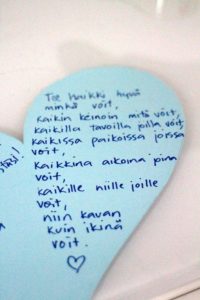 Tee kaikki hyvä
minkä voit,
kaikin keinoin mitä voit,
kaikilla tavoilla joilla voit,
kaikissa paikoissa joissa
voit
Kaikkina aikoina joina
voit,
kaikille niille joille
voit,
niin kauan
kuin ikinä
voit.